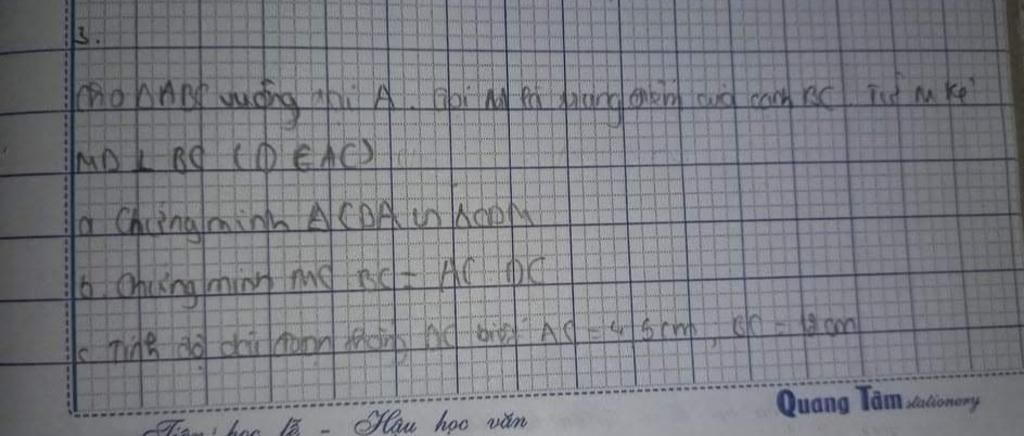 3.
Cho ΔABC vuông tại A. Gọi M là trung điểm của cạnh BC. Từ M kẻ
MD ⊥ BC (D ∈ AC)
a Chứng minh Δ ∽
b. Chứng minh MC BC = AC DC
c Tính độ dài đoạn thẳng biết = 5cm,
Tiên học lễ - Hậu học văn
Quang Tâm stationery